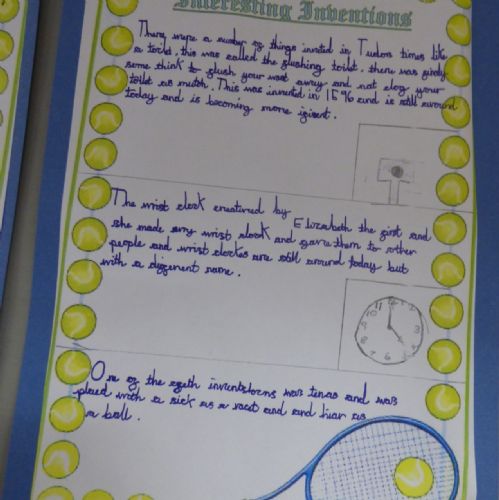 Interesting Inventions
There were a number of things invited in Tudors times like
a toilet, this was called the flushing toilet. there was
some think to glush your wast away and not clog your
toilet as mutch. This was invented in 1596 and is still around
today and is becoming more
The wrist clock creatured by Elizabeth the first and
she made any wrist clock and gave them to other
people and wrist clocks are still around today but
with a different name.
12
11
10
9
8
7
6
5
4
3
2
1
One of the was tenas and was
played with a sick as a racet and and hiar as
a ball.